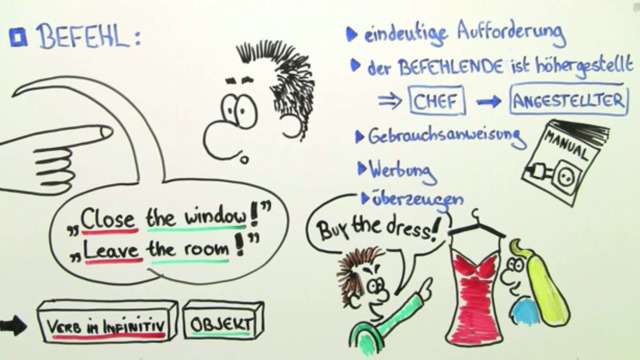 BEFEHL:
„Close the window!”
„Leave the room!”
VERB IM INFINITIV
OBJEKT
eindeutige Aufforderung
der BEFEHLENDE ist höhergestellt
⇒ CHEF → ANGESTELLTER
Gebrauchsanweisung
MANUAL
Werbung
überzeugen
Buy the dress!